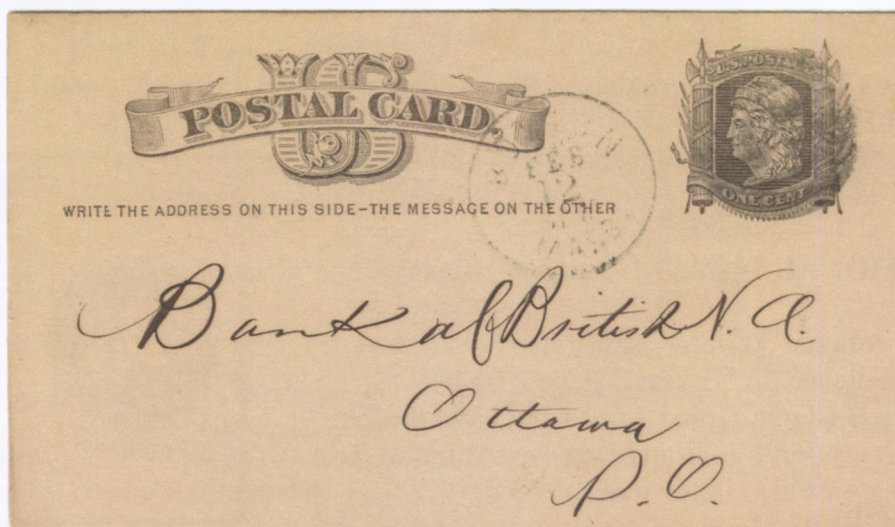 US
POSTAL CARD.
U.S. POSTAGE
ONE CENT
FEB
12
MASS
WRITE THE ADDRESS ON THIS SIDE-THE MESSAGE ON THE OTHER
Bank of British N. A.
Ottawa
P. O.